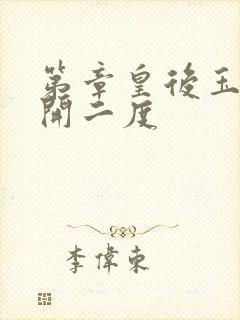 第章皇後玉
開二度
李偉東